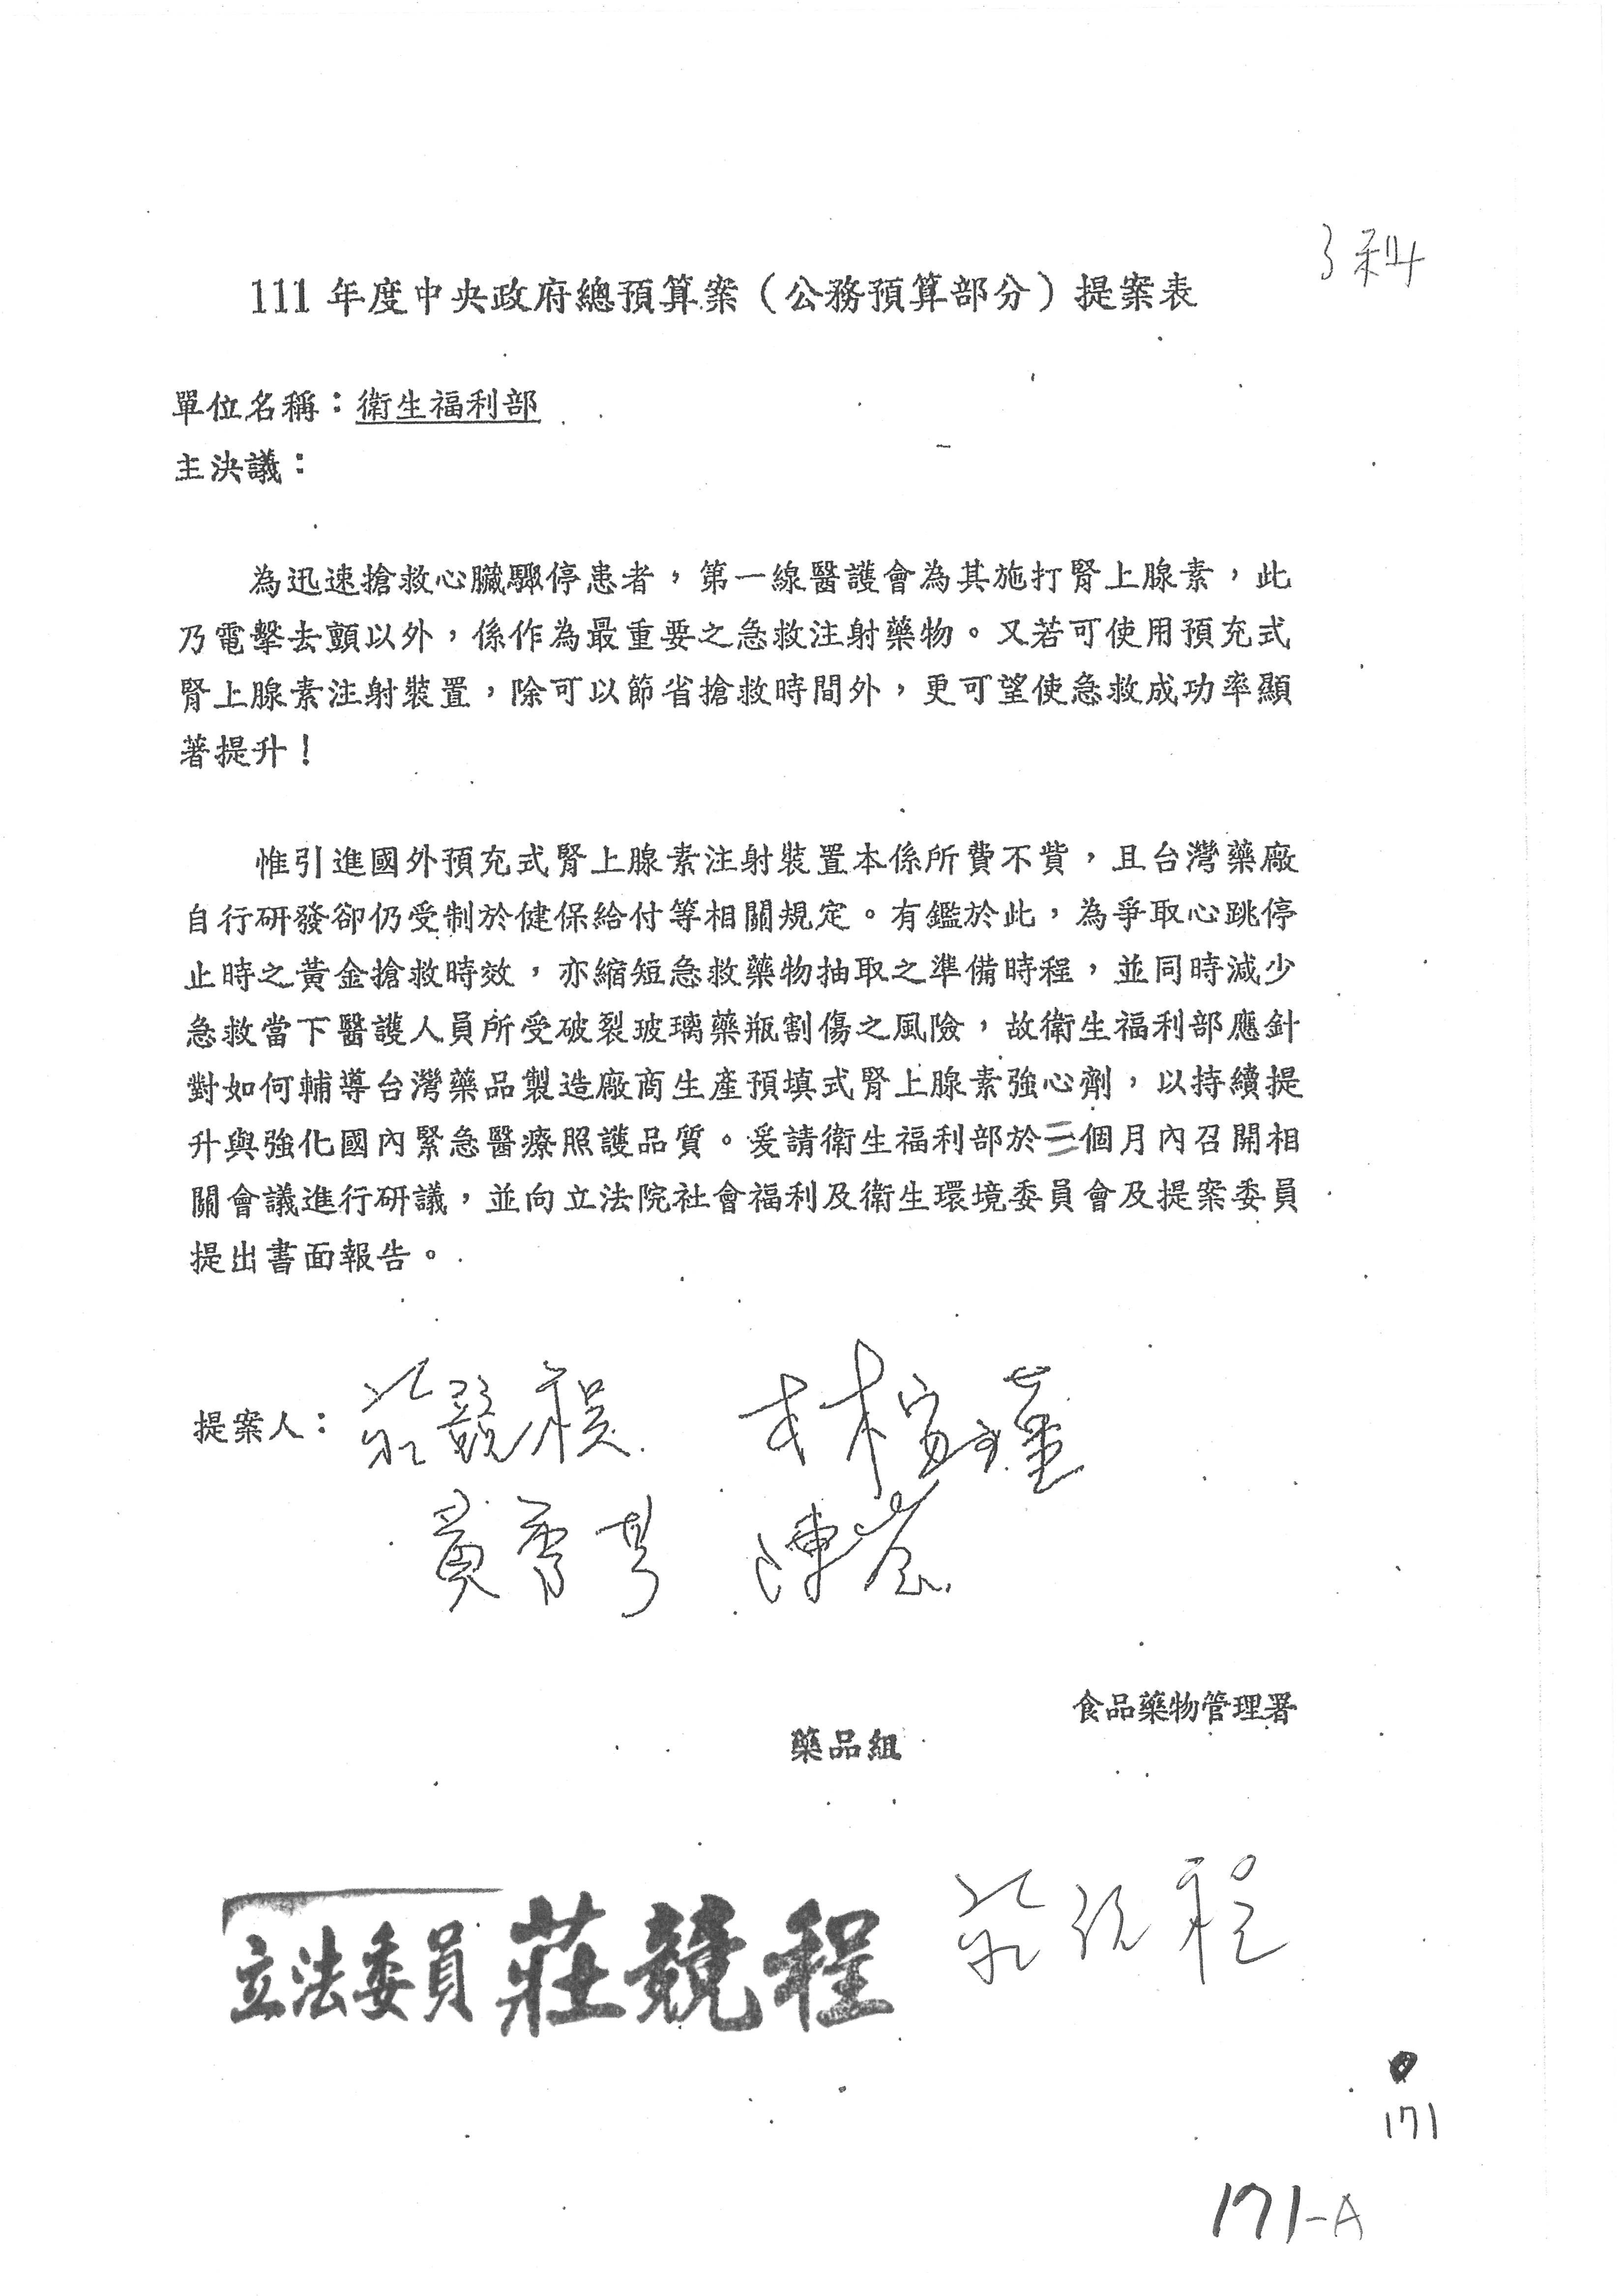 3科
111年度中央政府總預算案（公務預算部分）提案表
單位名稱：衛生福利部
主決議：
為迅速搶救心臟驟停患者，第一線醫護會為其施打腎上腺素，此
乃電擊去顫以外，係作為最重要之急救注射藥物。又若可使用預充式
腎上腺素注射裝置，除可以節省搶救時間外，更可望使急救成功率顯
著提升！
惟引進國外預充式腎上腺素注射裝置本係所費不貲，且台灣藥廠
自行研發卻仍受制於健保給付等相關規定。有鑑於此，為爭取心跳停
止時之黃金搶救時效，亦縮短急救藥物抽取之準備時程，並同時減少
急救當下醫護人員所受破裂玻璃藥瓶割傷之風險，故衛生福利部應針
對如何輔導台灣藥品製造廠商生產預填式腎上腺素強心劑，以持續提
升與強化國內緊急醫療照護品質。爰請衛生福利部於三個月內召開相
關會議進行研議，並向立法院社會福利及衛生環境委員會及提案委員
提出書面報告。
提案人：莊競程 林宜瑾
黃秀芳 陳瑩
食品藥物管理署
藥品組
立法委員莊競程 莊競程
171
171-A